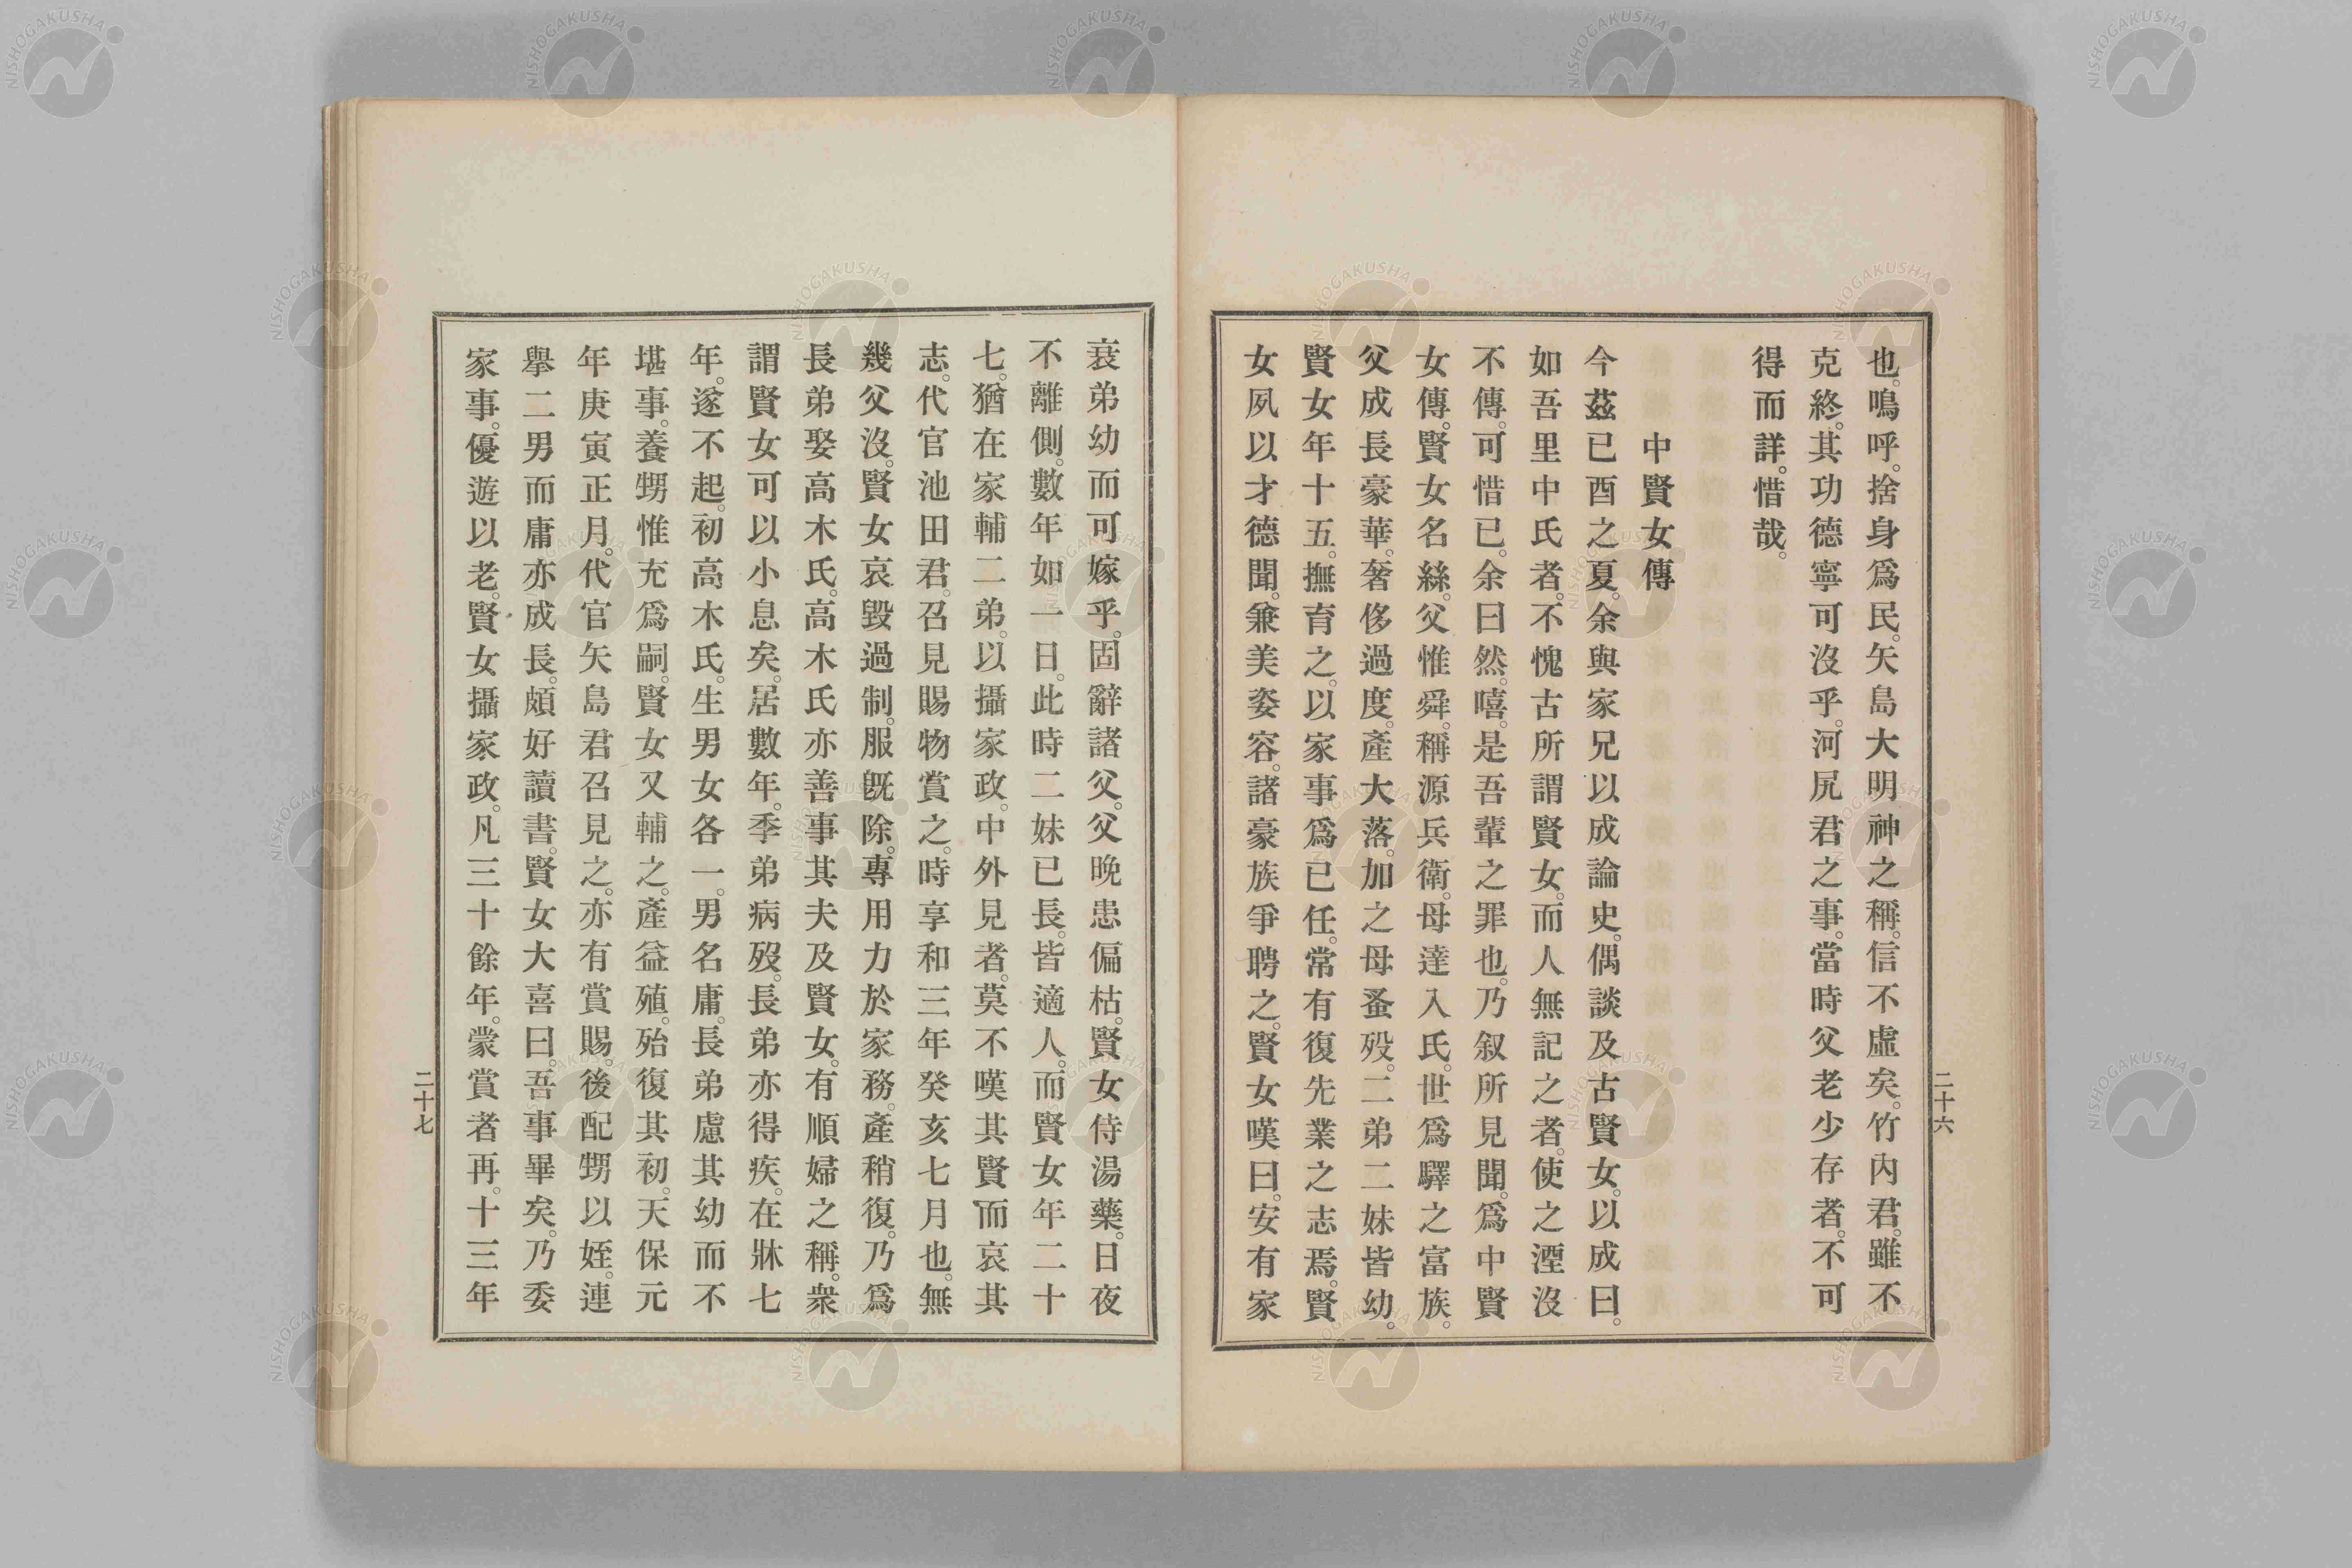 也。嗚呼。捨身爲民。矢島大明神之稱。信不虛矣。竹內君。雖不
克終。其功德寧可沒乎。河尻君之事。當時父老少存者。不可
得而詳。惜哉。
中賢女傳
今茲已酉之夏。余與家兄以成論史。偶談及古賢女。以成曰。
如吾里中氏者。不愧古所謂賢女。而人無記之者。使之湮沒
不傳。可惜已。余曰。然。嘻。是吾輩之罪也。乃叙所見聞。爲中賢
女傳。賢女名絲。父惟舜。稱源兵衛。母達入氏。世爲驛之富族。
父成長豪華。奢侈過度。產大落。加之母蚤歿。二弟二妹皆幼。
賢女年十五。撫育之。以家事爲已任。常有復先業之志焉。賢
女夙以才德聞。兼美姿容。諸豪族爭聘之。賢女嘆曰。安有家
二十六
衰弟幼而可嫁乎。固辭諸父。父晚患偏枯。賢女侍湯藥。日夜
不離側。數年如一日。此時二妹已長。皆適人。而賢女年二十
七。猶在家輔二弟。以攝家政。中外見者。莫不嘆其賢而哀其
志。代官池田君。召見賜物賞之。時享和三年癸亥七月也。無
幾父沒。賢女哀毀過制。服既除。專用力於家務。產稍復。乃爲
長弟娶高木氏。高木氏亦善事其夫及賢女。有順婦之稱。衆
謂賢女可以小息矣。居數年。季弟病歿。長弟亦得疾。在牀七
年。遂不起。初高木氏。生男女各一。男名庸。長弟慮其幼而不
堪事。養甥惟充爲嗣。賢女又輔之。產益殖。殆復其初。天保元
年庚寅正月。代官矢島君召見之。亦有賞賜。後配甥以姪。連
舉二男而庸亦成長。頗好讀書。賢女大喜曰。吾事畢矣。乃委
家事。優遊以老。賢女攝家政。凡三十餘年。蒙賞者再。十三年
二十七
NISHOGAKUSHA